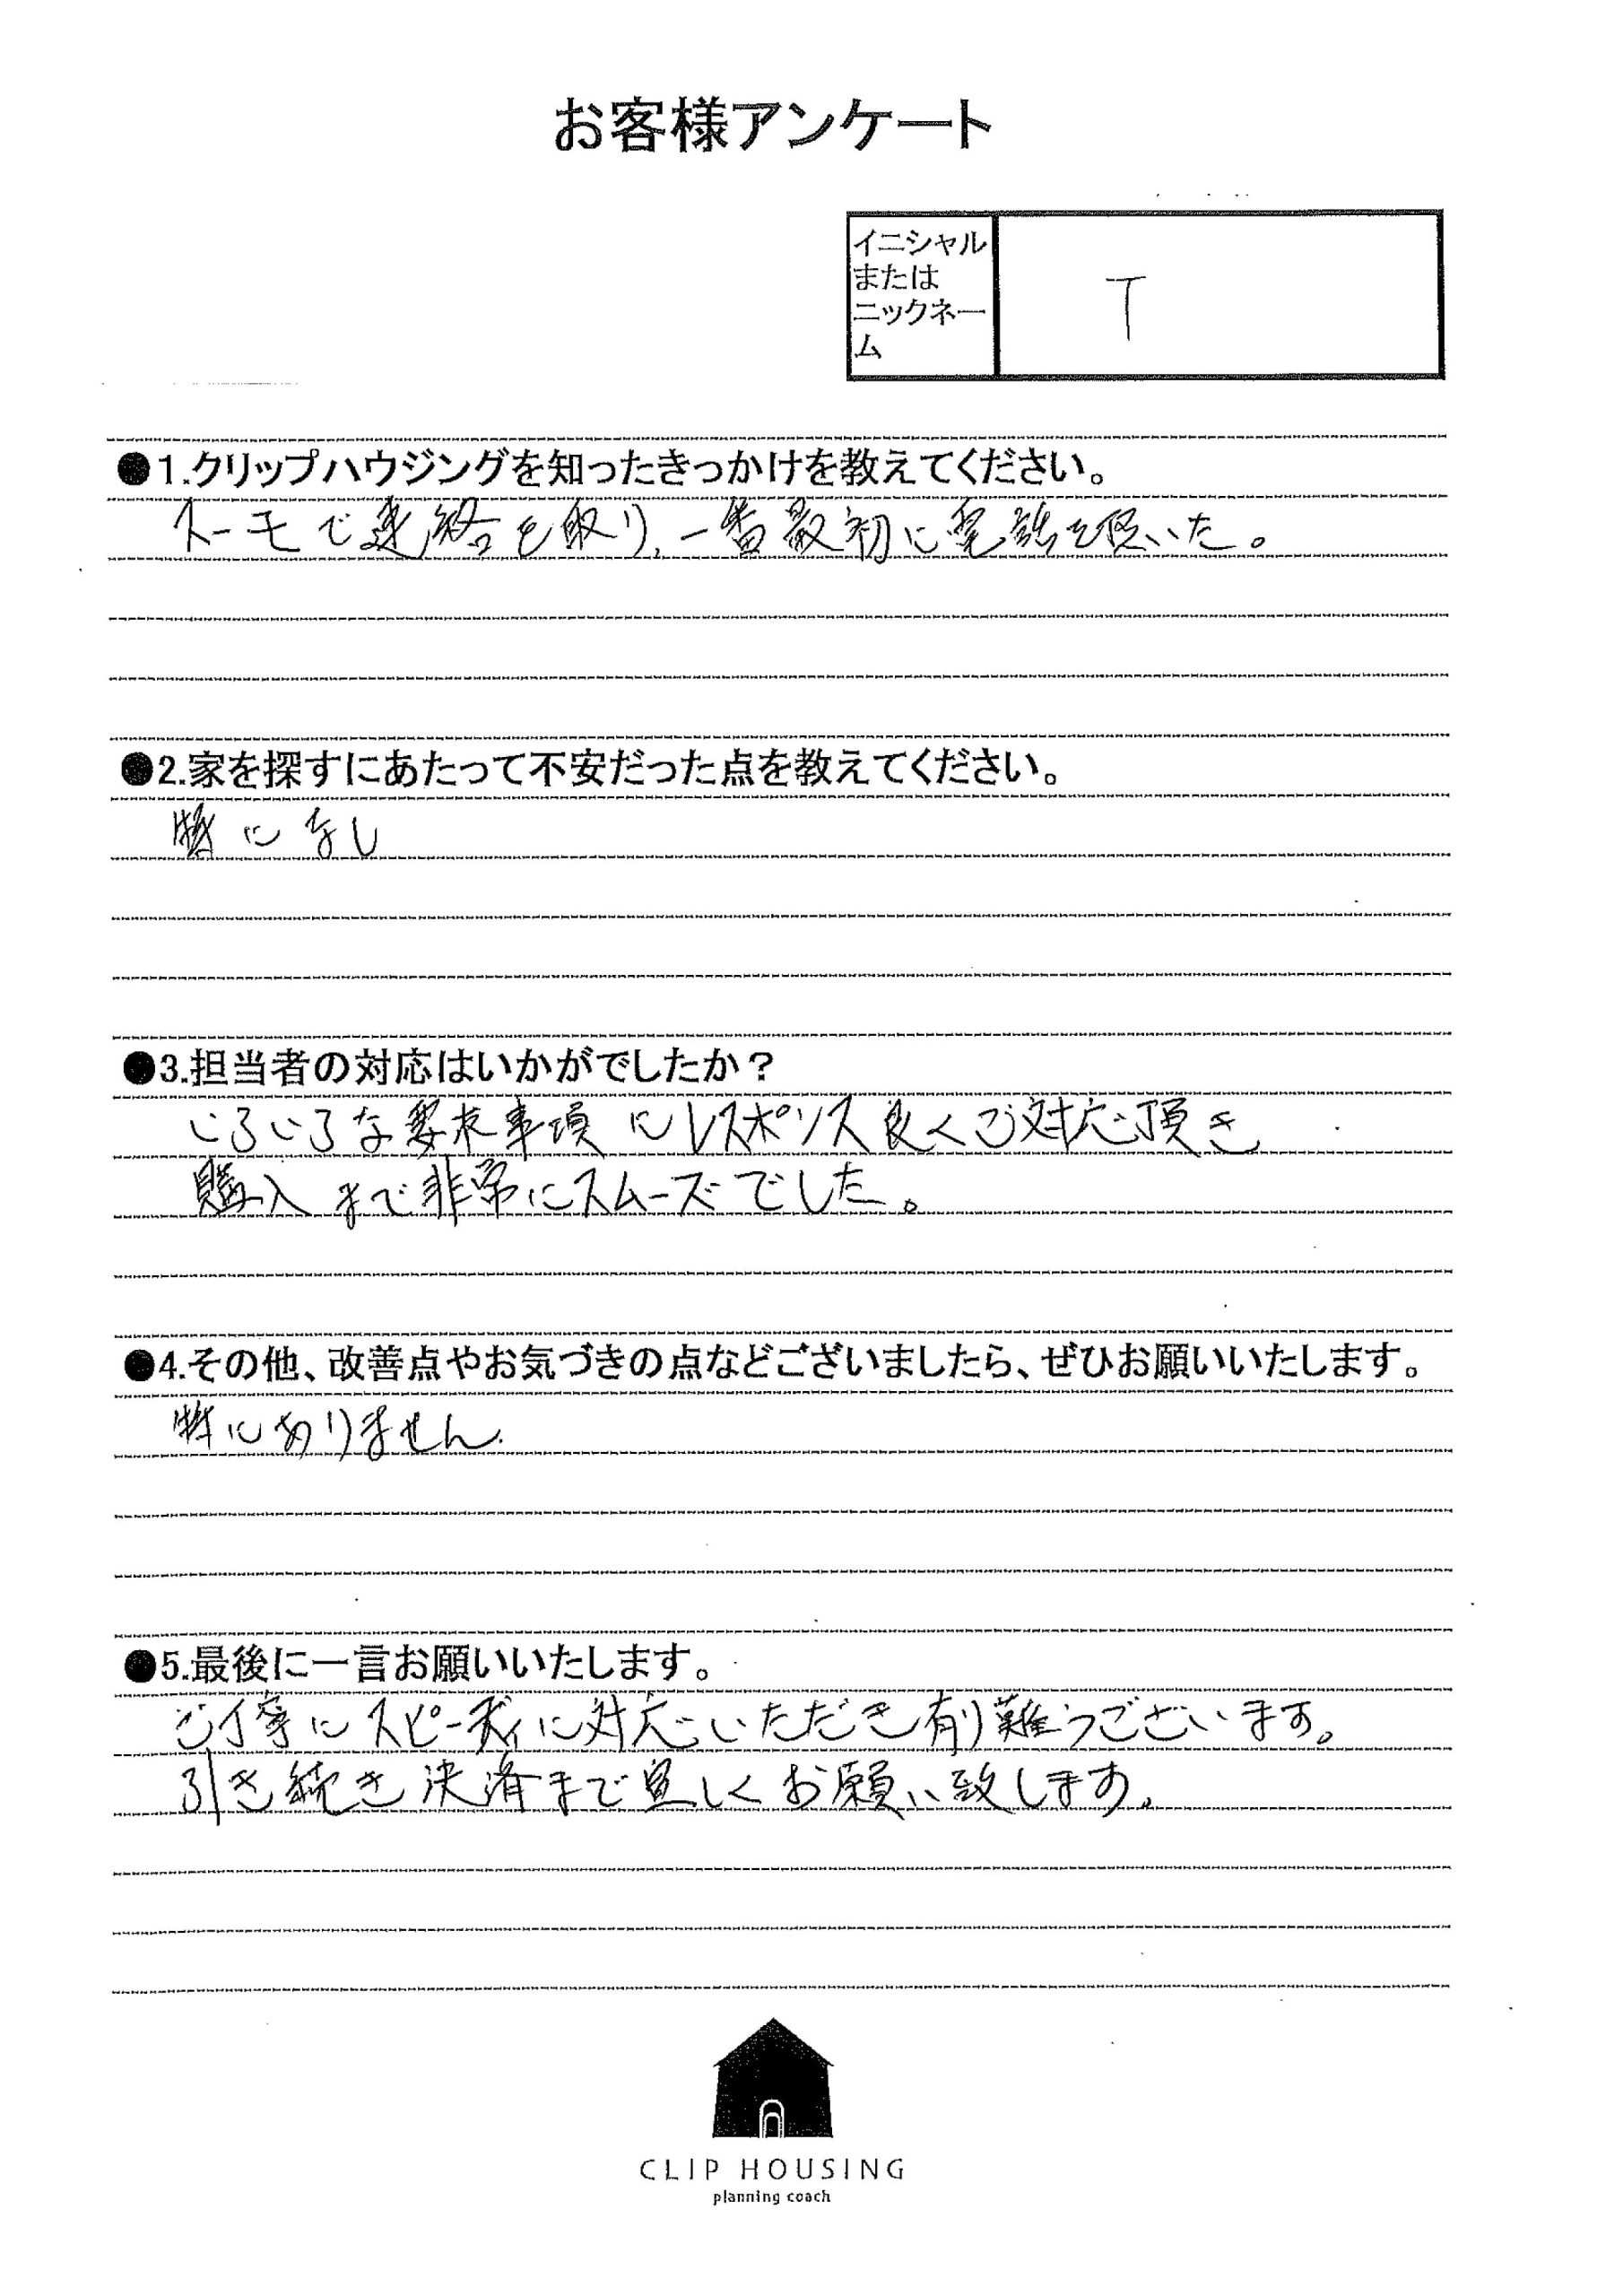 お客様アンケート
イニシャル
または
ニックネー
ム
T
●1.クリップハウジングを知ったきっかけを教えてください。
スーモで連絡を取り、一番最初に電話を頂いた。
●2.家を探すにあたって不安だった点を教えてください。
特になし
●3.担当者の対応はいかがでしたか？
いろいろな要求事項にレスポンス良くご対応頂き
購入まで非常にスムーズでした。
●4.その他、改善点やお気づきの点などございましたら、ぜひお願いいたします。
特にありません.
●5.最後に一言お願いいたします。
ご丁寧にスピーディに対応いただき有り難うございます。
引き続き決済まで宜しくお願い致します。
CLIP HOUSING
planning coach